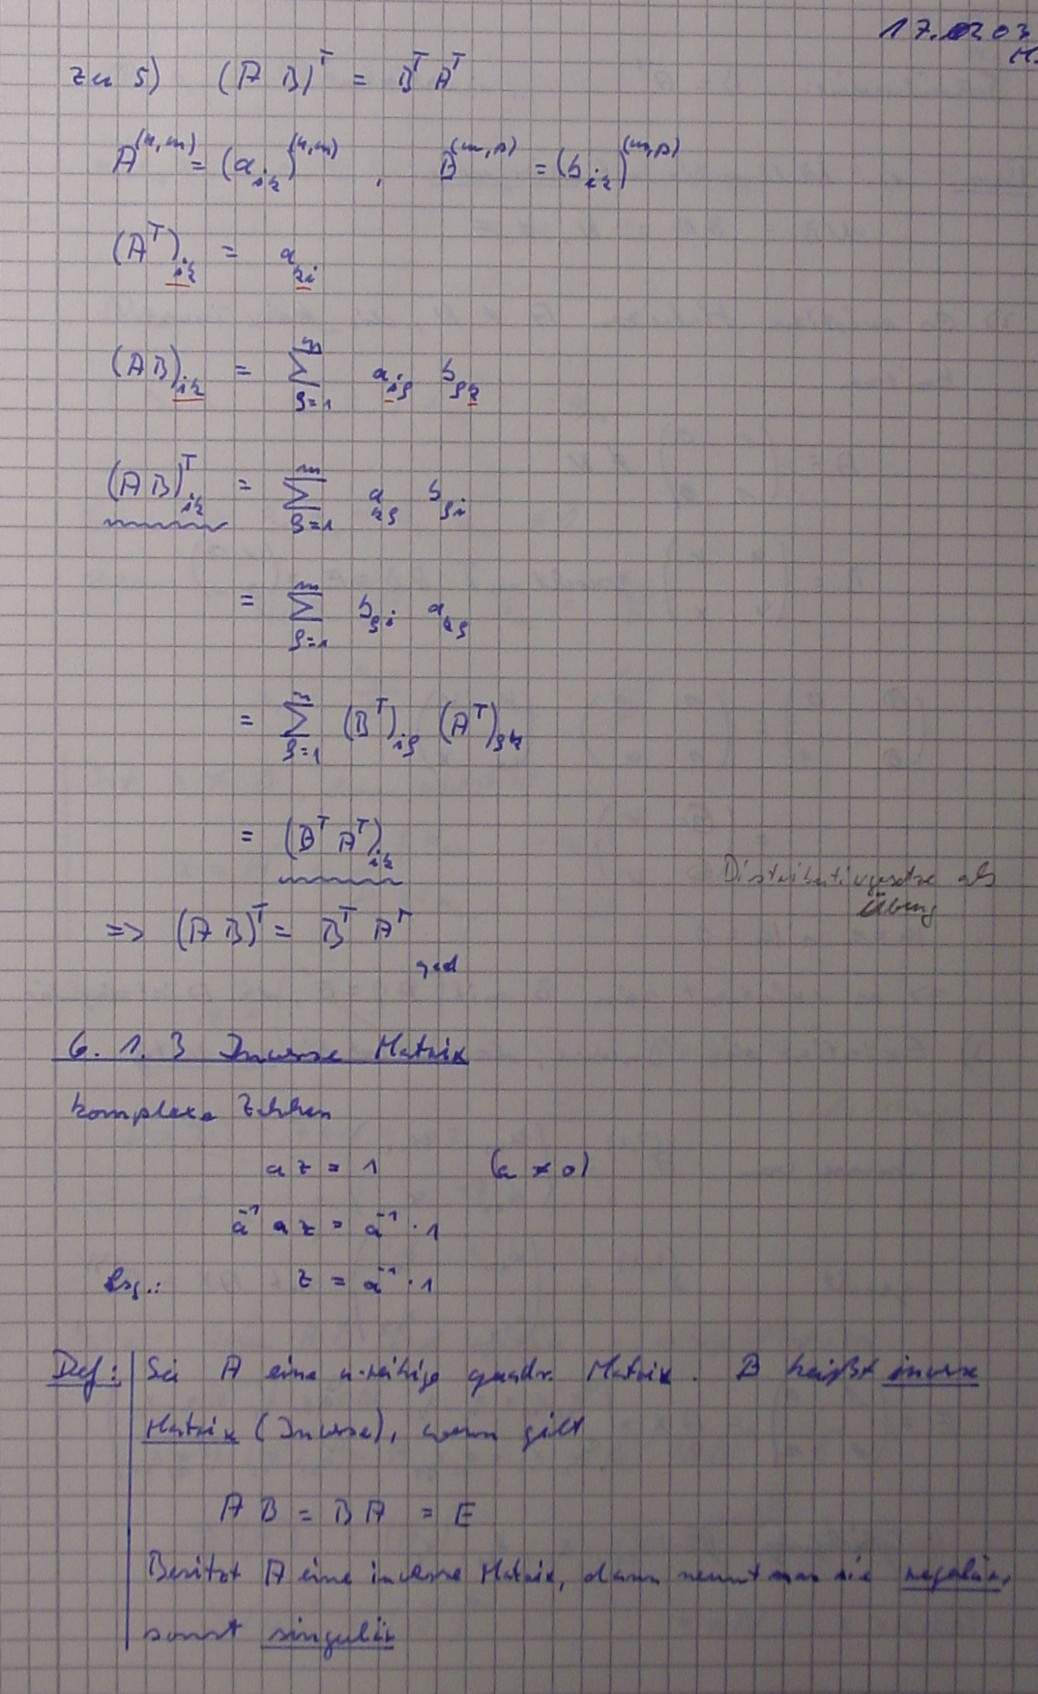 17. 03
zu 5) (A B)^T = B^T A^T
A^(n,m) = (a_ik)^(n,m) , B^(m,p) = (b_ik)^(m,p)
(A^T)_ik = a_ki
(AB)_ik = ∑_{ρ=1}^m a_iρ b_ρk
(AB)^T_ik = ∑_{ρ=1}^m a_kρ b_ρi
= ∑_{ρ=1}^m b_ρi a_kρ
= ∑_{ρ=1}^m (B^T)_iρ (A^T)_ρk
= (B^T A^T)_ik
Distributivgesetze als
Übung
=> (A B)^T = B^T A^T
qed
6. 1. 3 Inverse Matrix
komplexe Zahlen
a z = 1 (a ≠ 0)
a^-1 a z = a^-1 · 1
Lsg.: z = a^-1 · 1
Def: Sei A eine n-reihige quadr. Matrix. B heißt inverse
Matrix (Inverse), wenn gilt
A B = B A = E
Besitzt A eine inverse Matrix, dann nennt man sie regulär,
sonst singulär